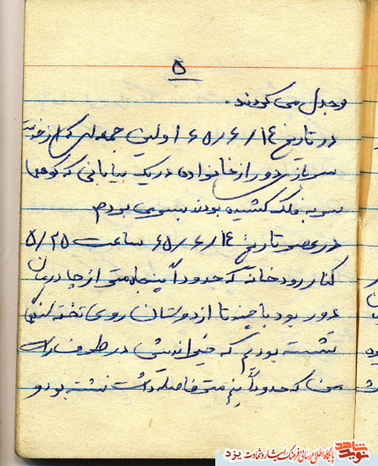 ۵
و جدل می کردند.
در تاریخ ۶۵/۶/۱۴ اولین جمعه ای که از خدمت
سربازی دور از خانواده در یک بیابانی که کوهها
سر به فلک کشیده بودند بسر می بردم
در عصر تاریخ ۶۵/۶/۱۴ ساعت ۵/۲۵
کنار رودخانه که حدوداً پنجاه متری از چادرمان
دور بود با چند تا از دوستان روی تخته سنگی
نشسته بودم که در طرف راست
من که حدوداً پنج متر فاصله داشت نشسته بود و
پایگاه اطلاع رسانی فرهنگ ایثار و شهادت یزد
نوید شاهد